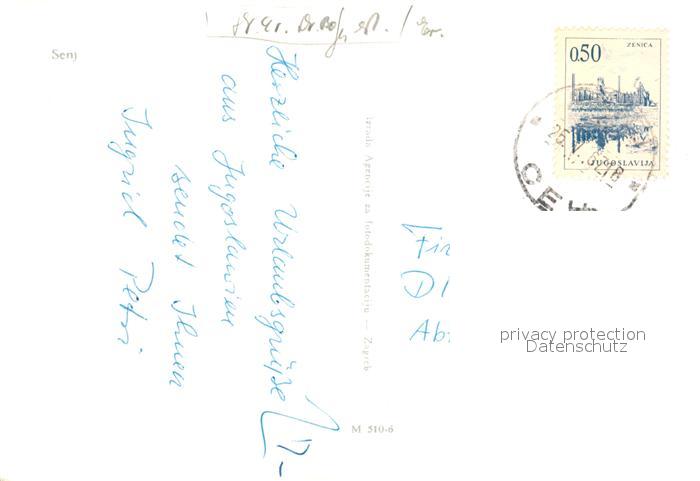 Senj
Herzliche Urlaubsgrüße
aus Jugoslawien
sendet Ihnen
Ingrid Petri
Izrada Agencije za fotodokumentaciju — Zagreb
M 510-6
0.50
ZENICA
JUGOSLAVIJA
Fir
D
Ab
privacy protection
Datenschutz